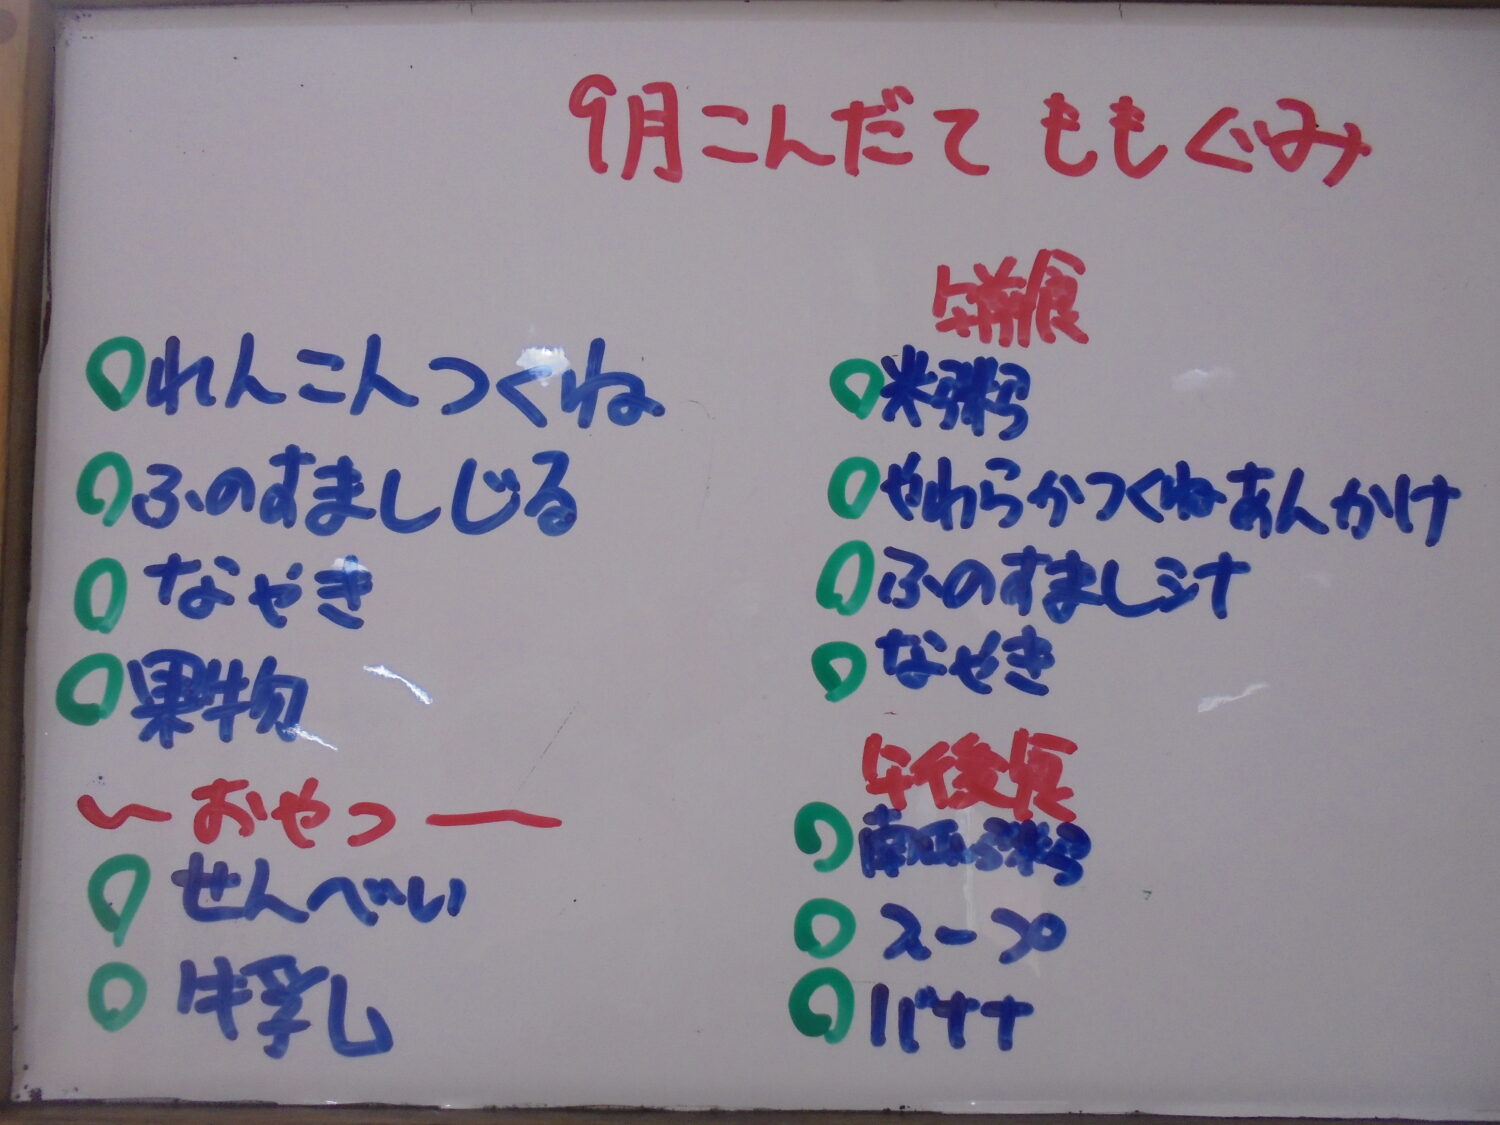 9月こんだて ももぐみ
れんこんつくね
ふのすましじる
なやき
果物
〜おやつ〜
せんべい
牛乳
午前食
米粥
やわらかつくねあんかけ
ふのすまし汁
なやき
午後食
南瓜粥
スープ
バナナ